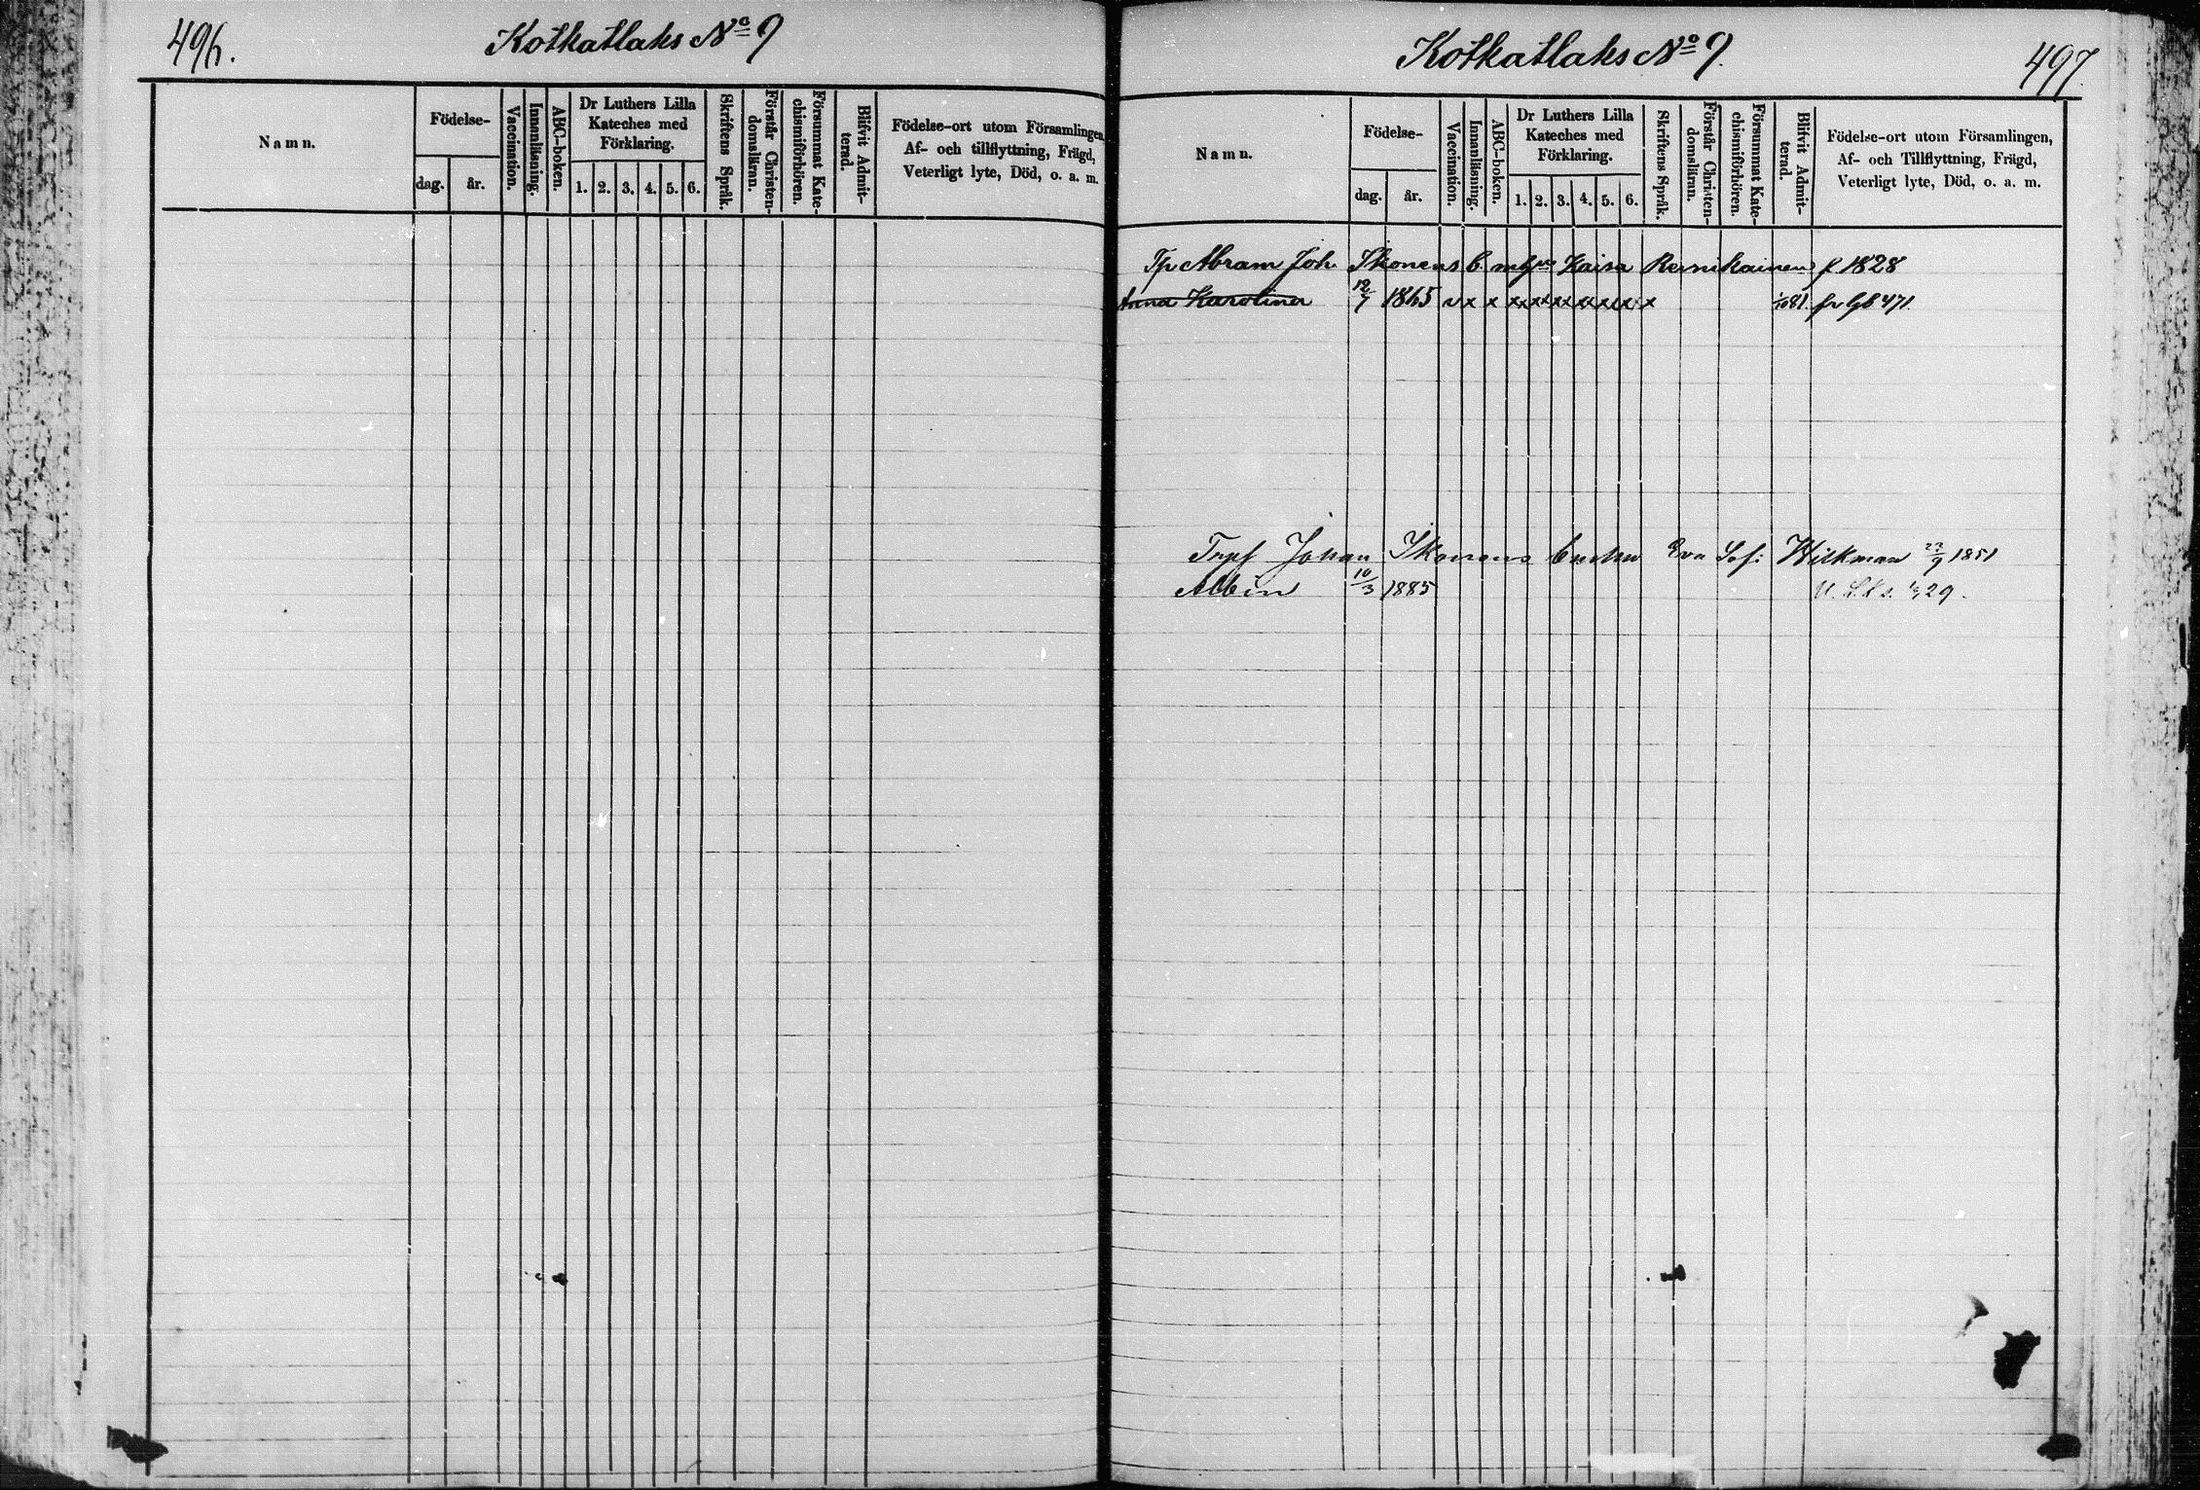 496.
Kotkatlaks No 9
Namn.
Födelse-
dag.
år.
Vaccination.
Innanläsning.
ABC-boken.
Dr Luthers Lilla
Kateches med
Förklaring.
1. 2. 3. 4. 5. 6.
Skriftens Språk.
Förstår Christen-
domsläran.
Försummat Kate-
chismiförhören.
Blifvit Admit-
terad.
Födelse-ort utom Församlingen,
Af- och tillflyttning, Frägd,
Veterligt lyte, Död, o. a. m.
Kotkatlaks No 9.
497.
Namn.
Födelse-
dag.
år.
Vaccination.
Innanläsning.
ABC-boken.
Dr Luthers Lilla
Kateches med
Förklaring.
1. 2. 3. 4. 5. 6.
Skriftens Språk.
Förstår Christen-
domsläran.
Försummat Kate-
chismiförhören.
Blifvit Admit-
terad.
Födelse-ort utom Församlingen,
Af- och Tillflyttning, Frägd,
Veterligt lyte, Död, o. a. m.
Tp Abram Joh Ikonens b. m Kaisa Rernikainen f 1828
Anna Karolina 12/7 1865 v x x xx xx xx xx xx xx x 81. fr Gb 471.
Johan Ikonens Enka Eva Sof: Wilkman 1851
Albin 10/3 1885 29.